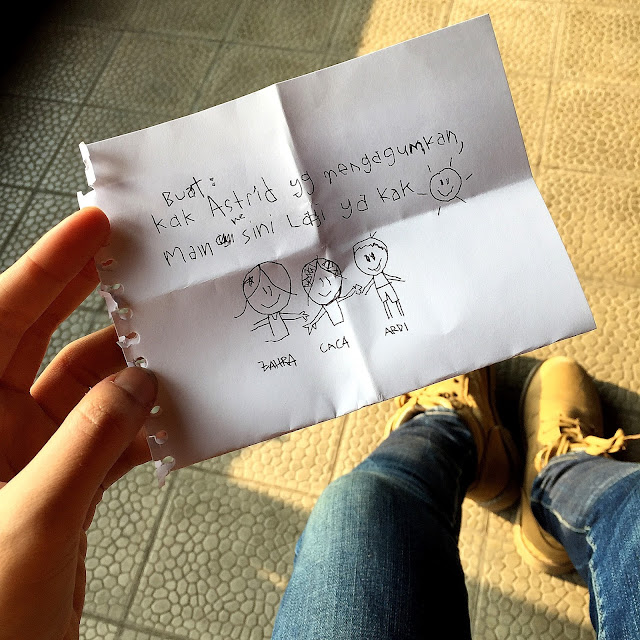 Buat:
kak Astrid yg mengagumkan,
Main ke sini Lagi ya kak
ZAHRA CACA ARDI